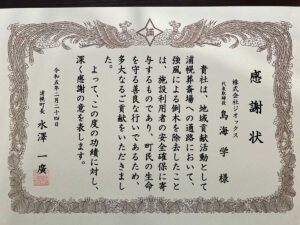 感謝状
株式会社ジオックス
代表取締役 鳥海 学 様
貴社は、地域貢献活動として
浦幌葬斎場への通路において、
強風による倒木を除去したこと
は、施設利用者の安全確保に寄
与するものであり、町民の生命
を守る善良な行いであるため、
多大なるご貢献をいただきまし
た。
よって、この度の功績に対し、
深く感謝の意を表します。
令和五年二月二十四日
浦幌町長 水澤一廣